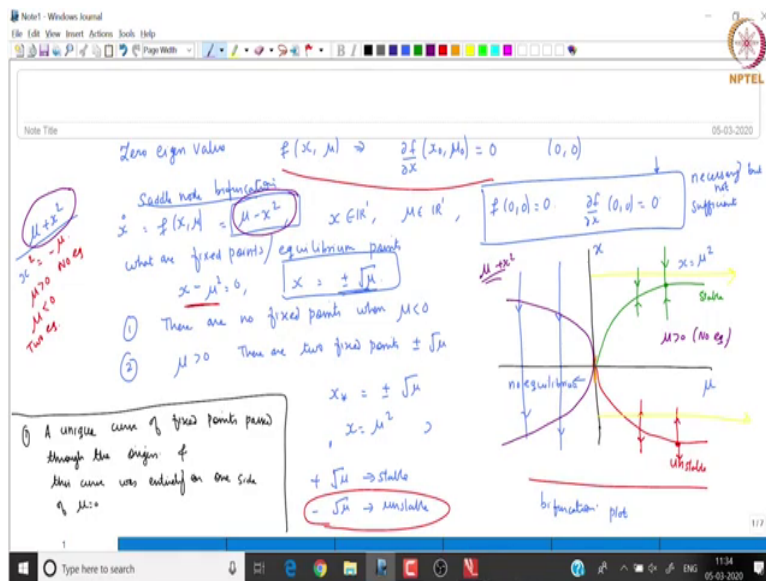 Note1 - Windows Journal
File Edit View Insert Actions Tools Help
Page Width
B I
NPTEL
Note Title
05-03-2020
Zero eigen value f(x, μ) ⇒ ∂f/∂x (x₀, μ₀) = 0 (0,0)
Saddle node bifurcation
ẋ = f(x,μ) = μ - x² x ∈ ℝ', μ ∈ ℝ', f(0,0)=0 ∂f/∂x (0,0) = 0
necessary but
not
sufficient
μ + x²
x² = -μ
μ>0 No eq
μ<0
Two eq.
what are fixed points/equilibrium points
x - μ² = 0, x = ± √μ
① There are no fixed points when μ<0
② μ>0 There are two fixed points ± √μ
x* = ± √μ
, x = μ² ,
+ √μ → stable
- √μ → unstable
① A unique curve of fixed points passed
through the origin &
this curve was entirely on one side
of μ=0
μ + x²
x
x = μ²
stable
μ>0 (No eq)
no equilibria
μ
unstable
bifurcation plot
1/7
1
Type here to search
ENG
11:34
05-03-2020